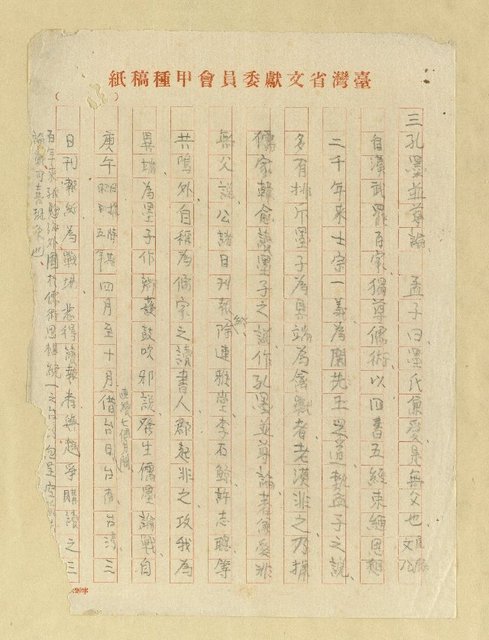 臺灣省文獻委員會甲種稿紙
三孔墨並尊論 孟子曰墨氏兼愛是無父也
自漢武罷百家獨尊儒術以四書五經束縛思想
二千年來士宗一義為閑先王之道執孟子之說
多有排斥墨子為異端為禽獸者老漢非之乃據
儒家韓愈讀墨子之說作孔墨並尊論者兼愛非
無父說公諸日刊報除連雅堂李石鯨許志聰等
共鳴外自稱為儒家之讀書人群起非之攻我為
異端為墨子作辯護鼓吹邪說發生儒墨論戰自
庚午四月至十月連續七個月間借台日台南台灣三
日刊報紙為戰場惹得讀報者無趣爭購讀之三
百年來孤懸海外團於儒術思想統一之台灣
論戰可喜現象也